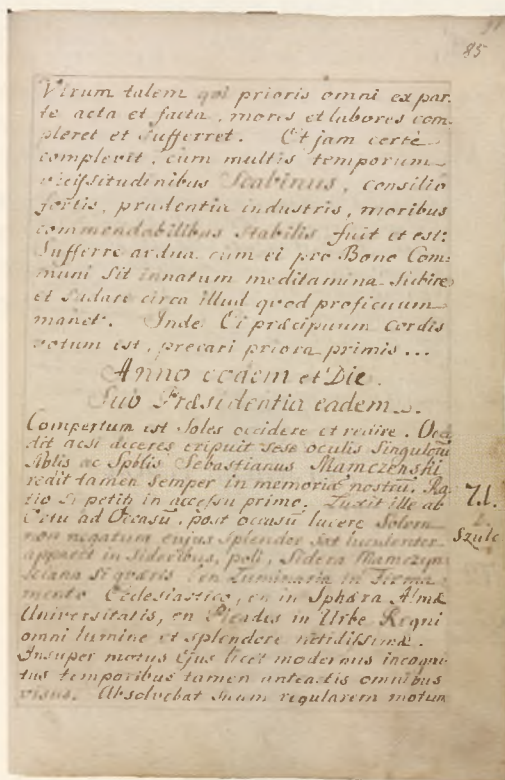 85
Virum talem qui prioris omni ex par-
te acta et facta, mores et labores com-
pleret et sufferret. Et jam certè
complevit, cum multis temporum
vicissitudinibus Scabinus, consilio
fortis, prudentia industris, moribus
commendabilibus stabilis fuit et est:
Sufferre ardua cum ei pro Bono Com-
muni Sit innatum meditamina Subire
et Sudare circa illud quod proficuum
manet. Inde Ei præcipuum Cordis
votum est, precari priora primis...
Anno eodem et Die.
Sub Præsidentia eadem.
Compertum est Soles occidere et redire. Occi-
dit acsi diceres eripuit sese oculis Singulorũ
Nblis ac Spblis Sebastianus Mamczenski
redit tamen Semper in memoriã nostrũ. Ra-
tio Si petit in accessu primo. Luxit ille ab
Ortu ad Occasũ, post occasũ lucere Solem
non negatum cujus Splendor Sat luculenter
apparet in Sideribus, poli, Sidera Mamczyn-
sciana Si quæris en Luminaria in Firma-
mento Ecclesiastico, en in Sphæra Almæ
Universitatis, en Pleiades in Urbe Regni
omni lumine et splendore nitidissimæ.
Insuper motus Ejus licet modernus incogni-
tus temporibus tamen anteactis omnibus
visus. Absolvebat Suum regularem motum
Szulc